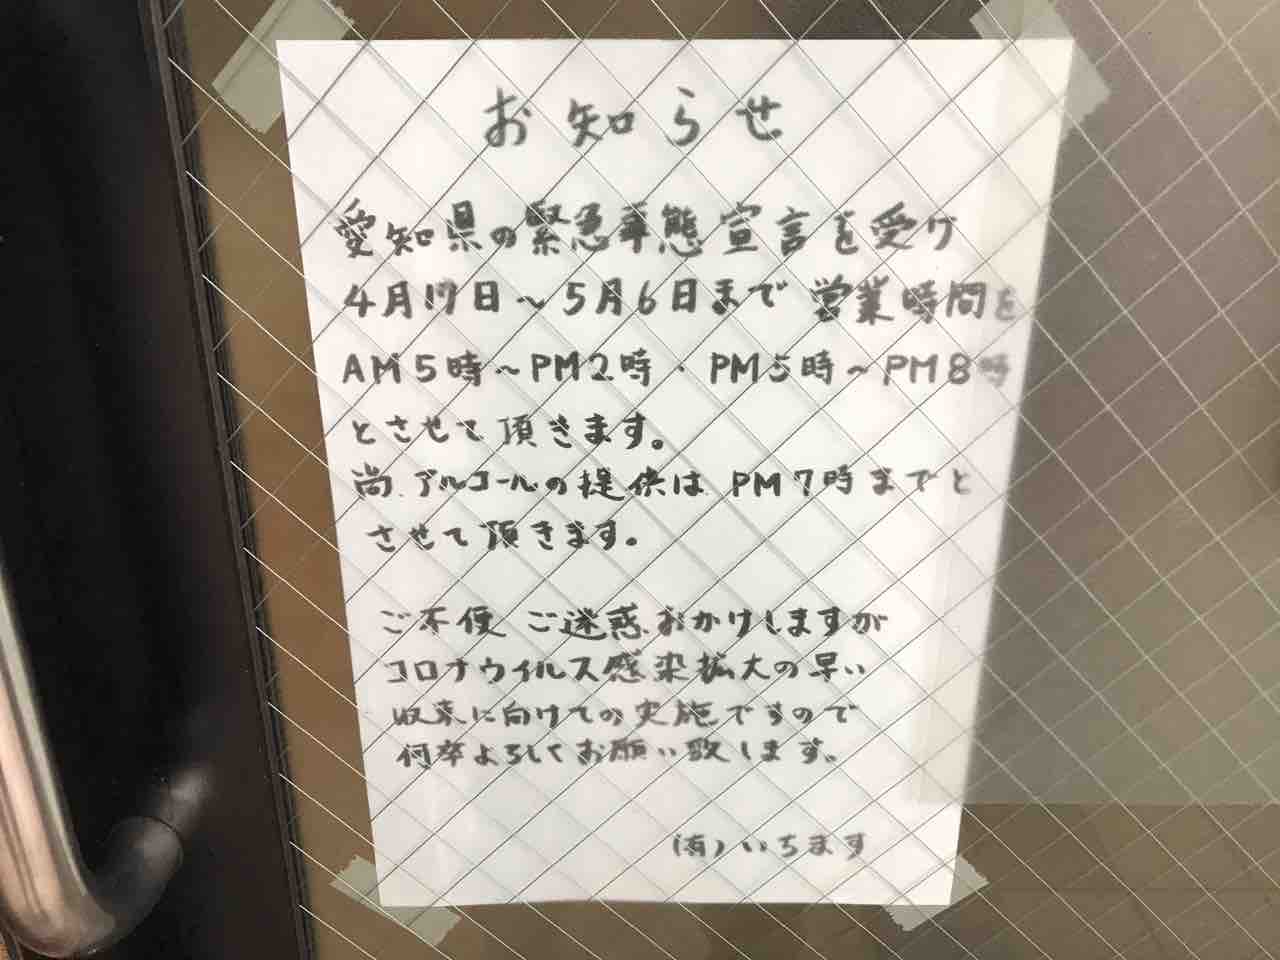 お知らせ
愛知県の緊急事態宣言を受け
4月17日～5月6日まで営業時間を
AM5時～PM2時・PM5時～PM8時
とさせて頂きます。
尚、アルコールの提供はPM7時までと
させて頂きます。
ご不便ご迷惑おかけしますが
コロナウイルス感染拡大の早い
収束に向けての実施ですので
何卒よろしくお願い致します。
(有)いちます